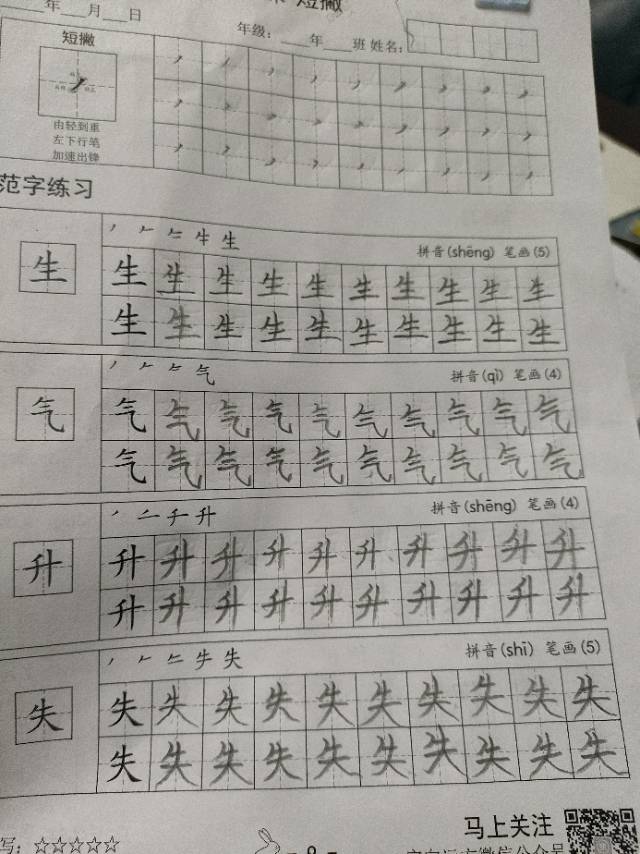 短撇
年___月___日
年级：___年___班 姓名：
短撇
由轻到重
左下行笔
加速出锋
范字练习
生 拼音(shēng) 笔画(5)
生 生 生 生 生 生 生 生 生 生 生
生 生 生 生 生 生 生 生 生 生
气 拼音(qì) 笔画(4)
气 气 气 气 气 气 气 气 气 气 气
气 气 气 气 气 气 气 气 气 气
升 拼音(shēng) 笔画(4)
升 升 升 升 升 升 升 升 升 升 升
升 升 升 升 升 升 升 升 升 升
失 拼音(shī) 笔画(5)
失 失 失 失 失 失 失 失 失 失 失
失 失 失 失 失 失 失 失 失 失
写：☆☆☆☆☆
马上关注